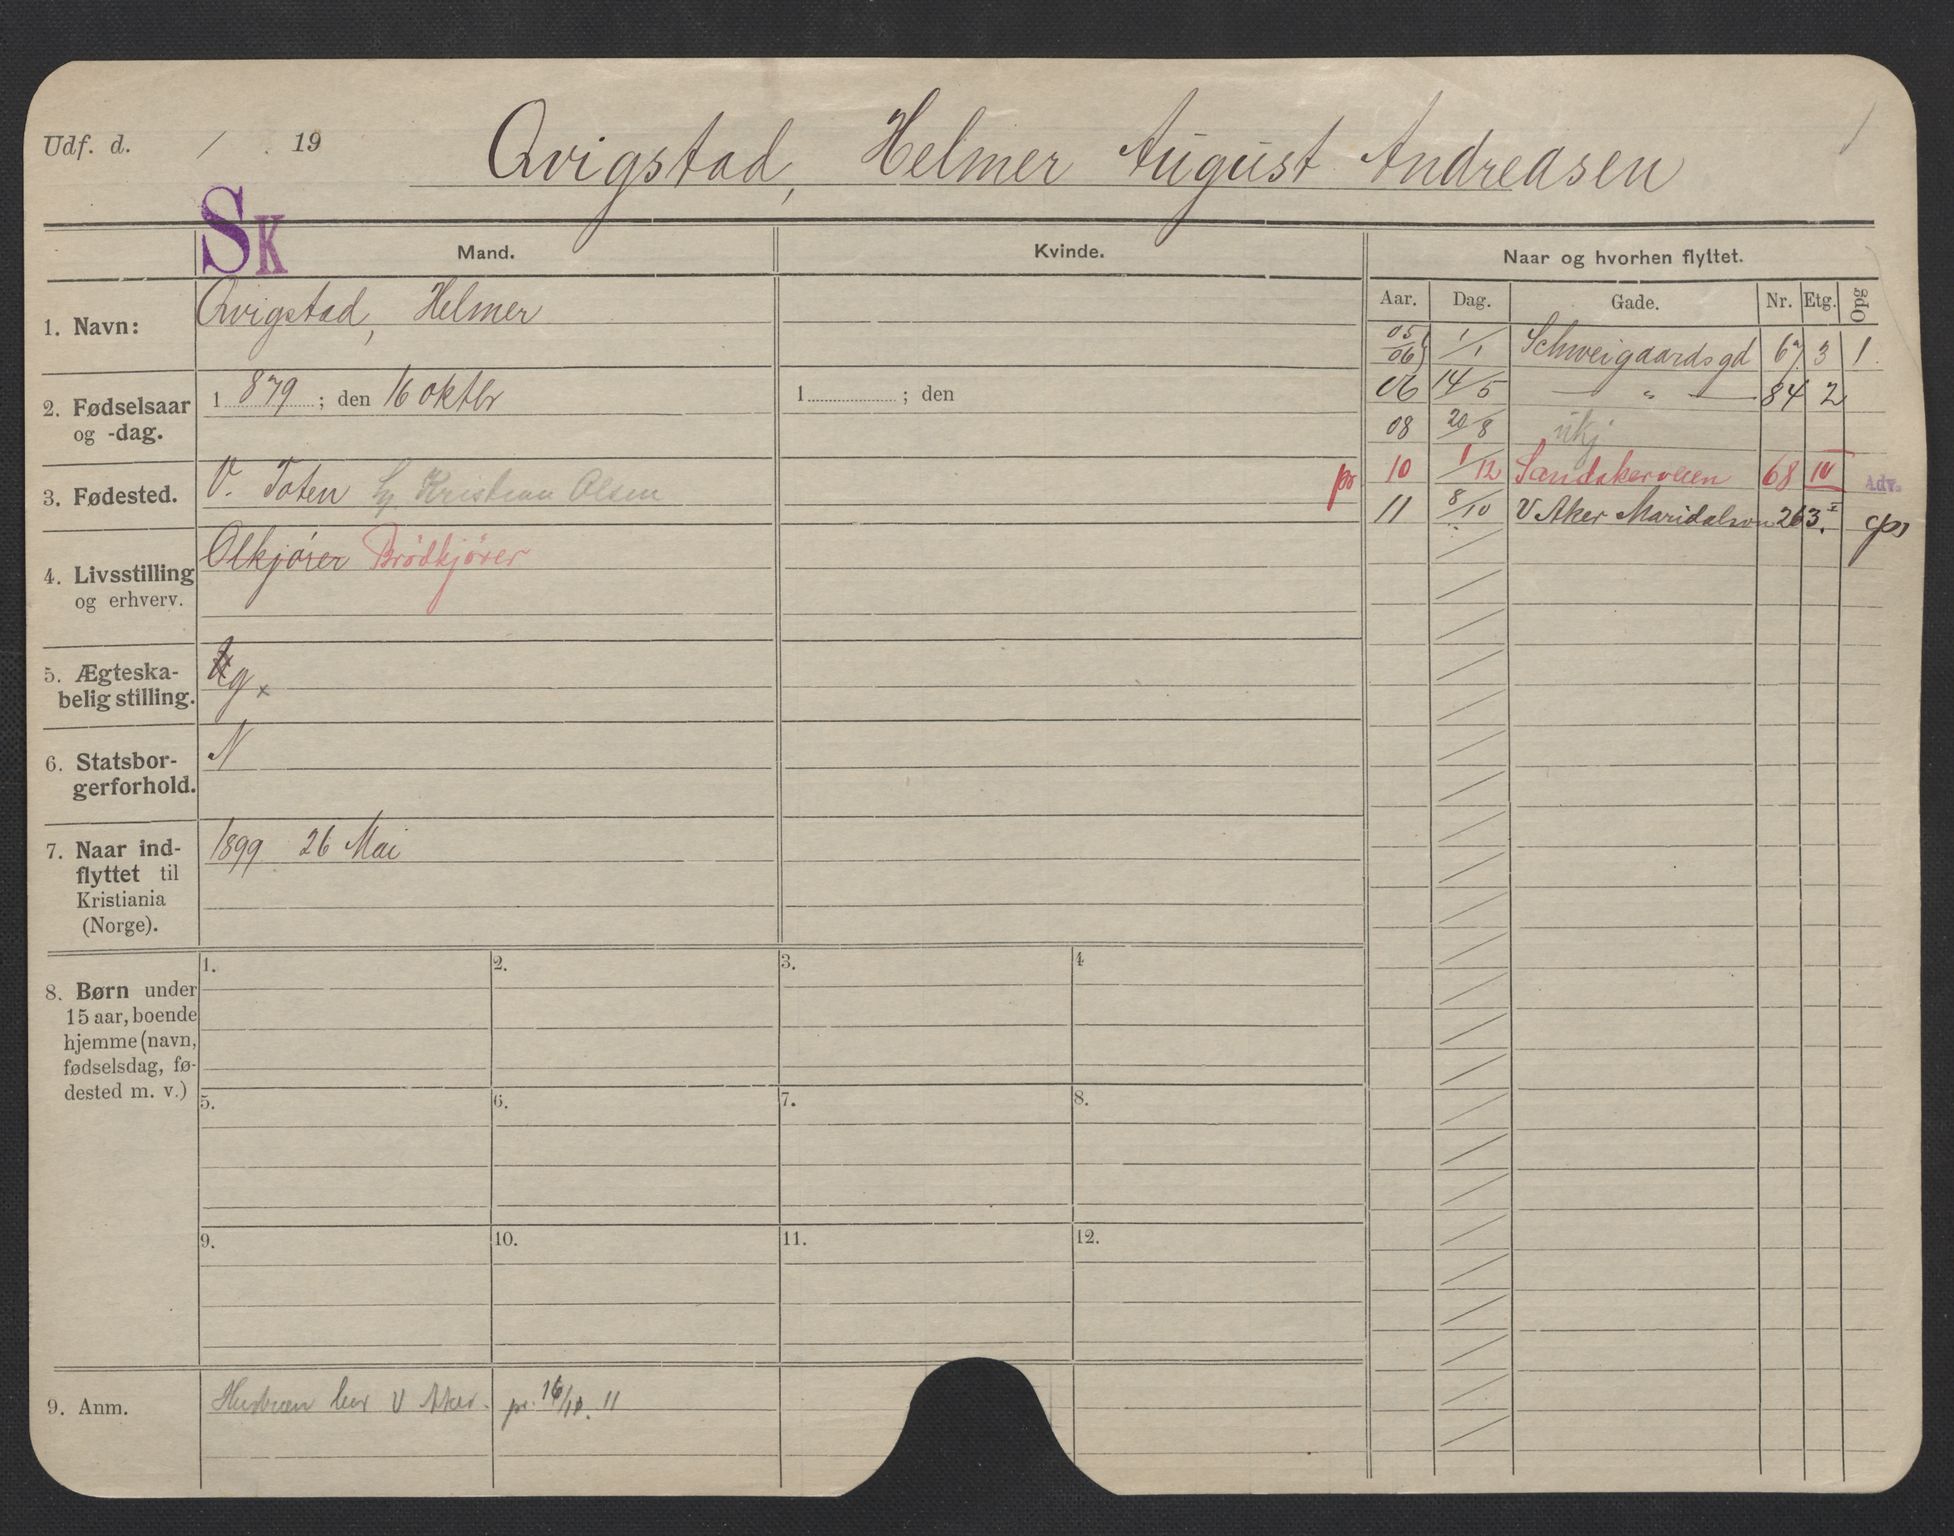 Udf. d. / 19
Qvigstad, Helmer August Andreasen
SK
Mand.
Kvinde.
Naar og hvorhen flyttet.
Aar. Dag. Gade. Nr. Etg. Opg
1. Navn:
Qvigstad, Helmer
2. Fødselsaar
og -dag.
1 879 ; den 16 oktbr
1 ; den
3. Fødested.
V. Toten Kristian Olsen
4. Livsstilling
og erhverv.
Ølkjører Brødkjører
5. Ægteska-
belig stilling.
g x
6. Statsbor-
gerforhold.
N
7. Naar ind-
flyttet til
Kristiania
(Norge).
1899 26 Mai
05/06 1/1 Schweigaardsgd 67 3 1
06 14/5 — " — 84 2
08 20/8 ukj
pr 10 1/12 Sandakerveien 68 IV Adv.
11 8/10 V Aker Maridalsvn 263. I
8. Børn under
15 aar, boende
hjemme (navn,
fødselsdag, fø-
dested m. v.)
1. 2. 3. 4
5. 6. 7. 8.
9. 10. 11. 12.
9. Anm.
V Aker. pr. 16/10. 11